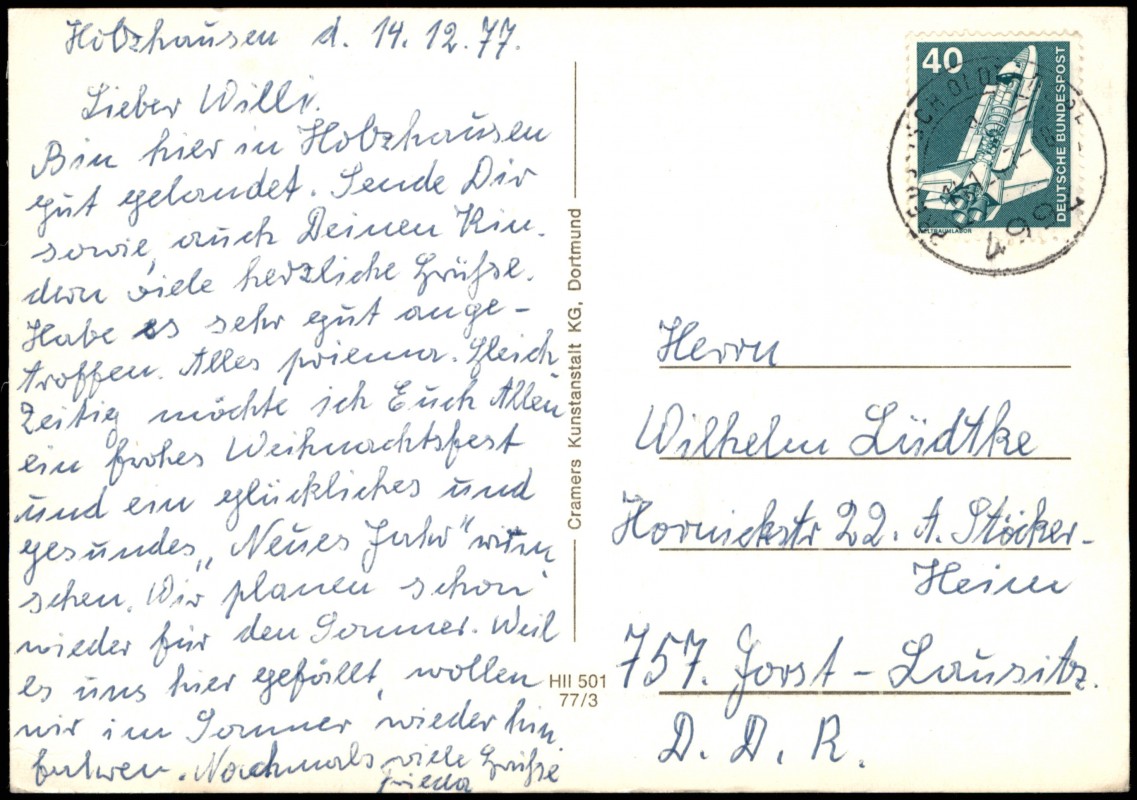 Holzhausen d. 14.12.77.
Lieber Willi.
Bin hier in Holzhausen
gut gelandet. Sende Dir
sowie, auch Deinen Kin.
dern viele herzliche Grüßse.
Habe es sehr gut ange-
troffen. Alles priema. Gleich
Zeitig möchte ich Euch Allen
ein frohes Weihnachtsfest
und ein glückliches und
gesundes „Neues Jahr" wün
schen. Wir planen schon
wieder für den Sommer. Weil
es uns hier gefällt, wollen
wir im Sommer wieder hin
fahren. Nochmals viele Grüßse
Frieda
Cramers Kunstanstalt KG, Dortmund
HII 501
77/3
40
DEUTSCHE BUNDESPOST
WELTRAUMLABOR
4994
Herrn
Wilhelm Lüdtke
Hornickstr 22. A. Stöcker-
Heim
757. Forst - Lausitz.
D. D. R.